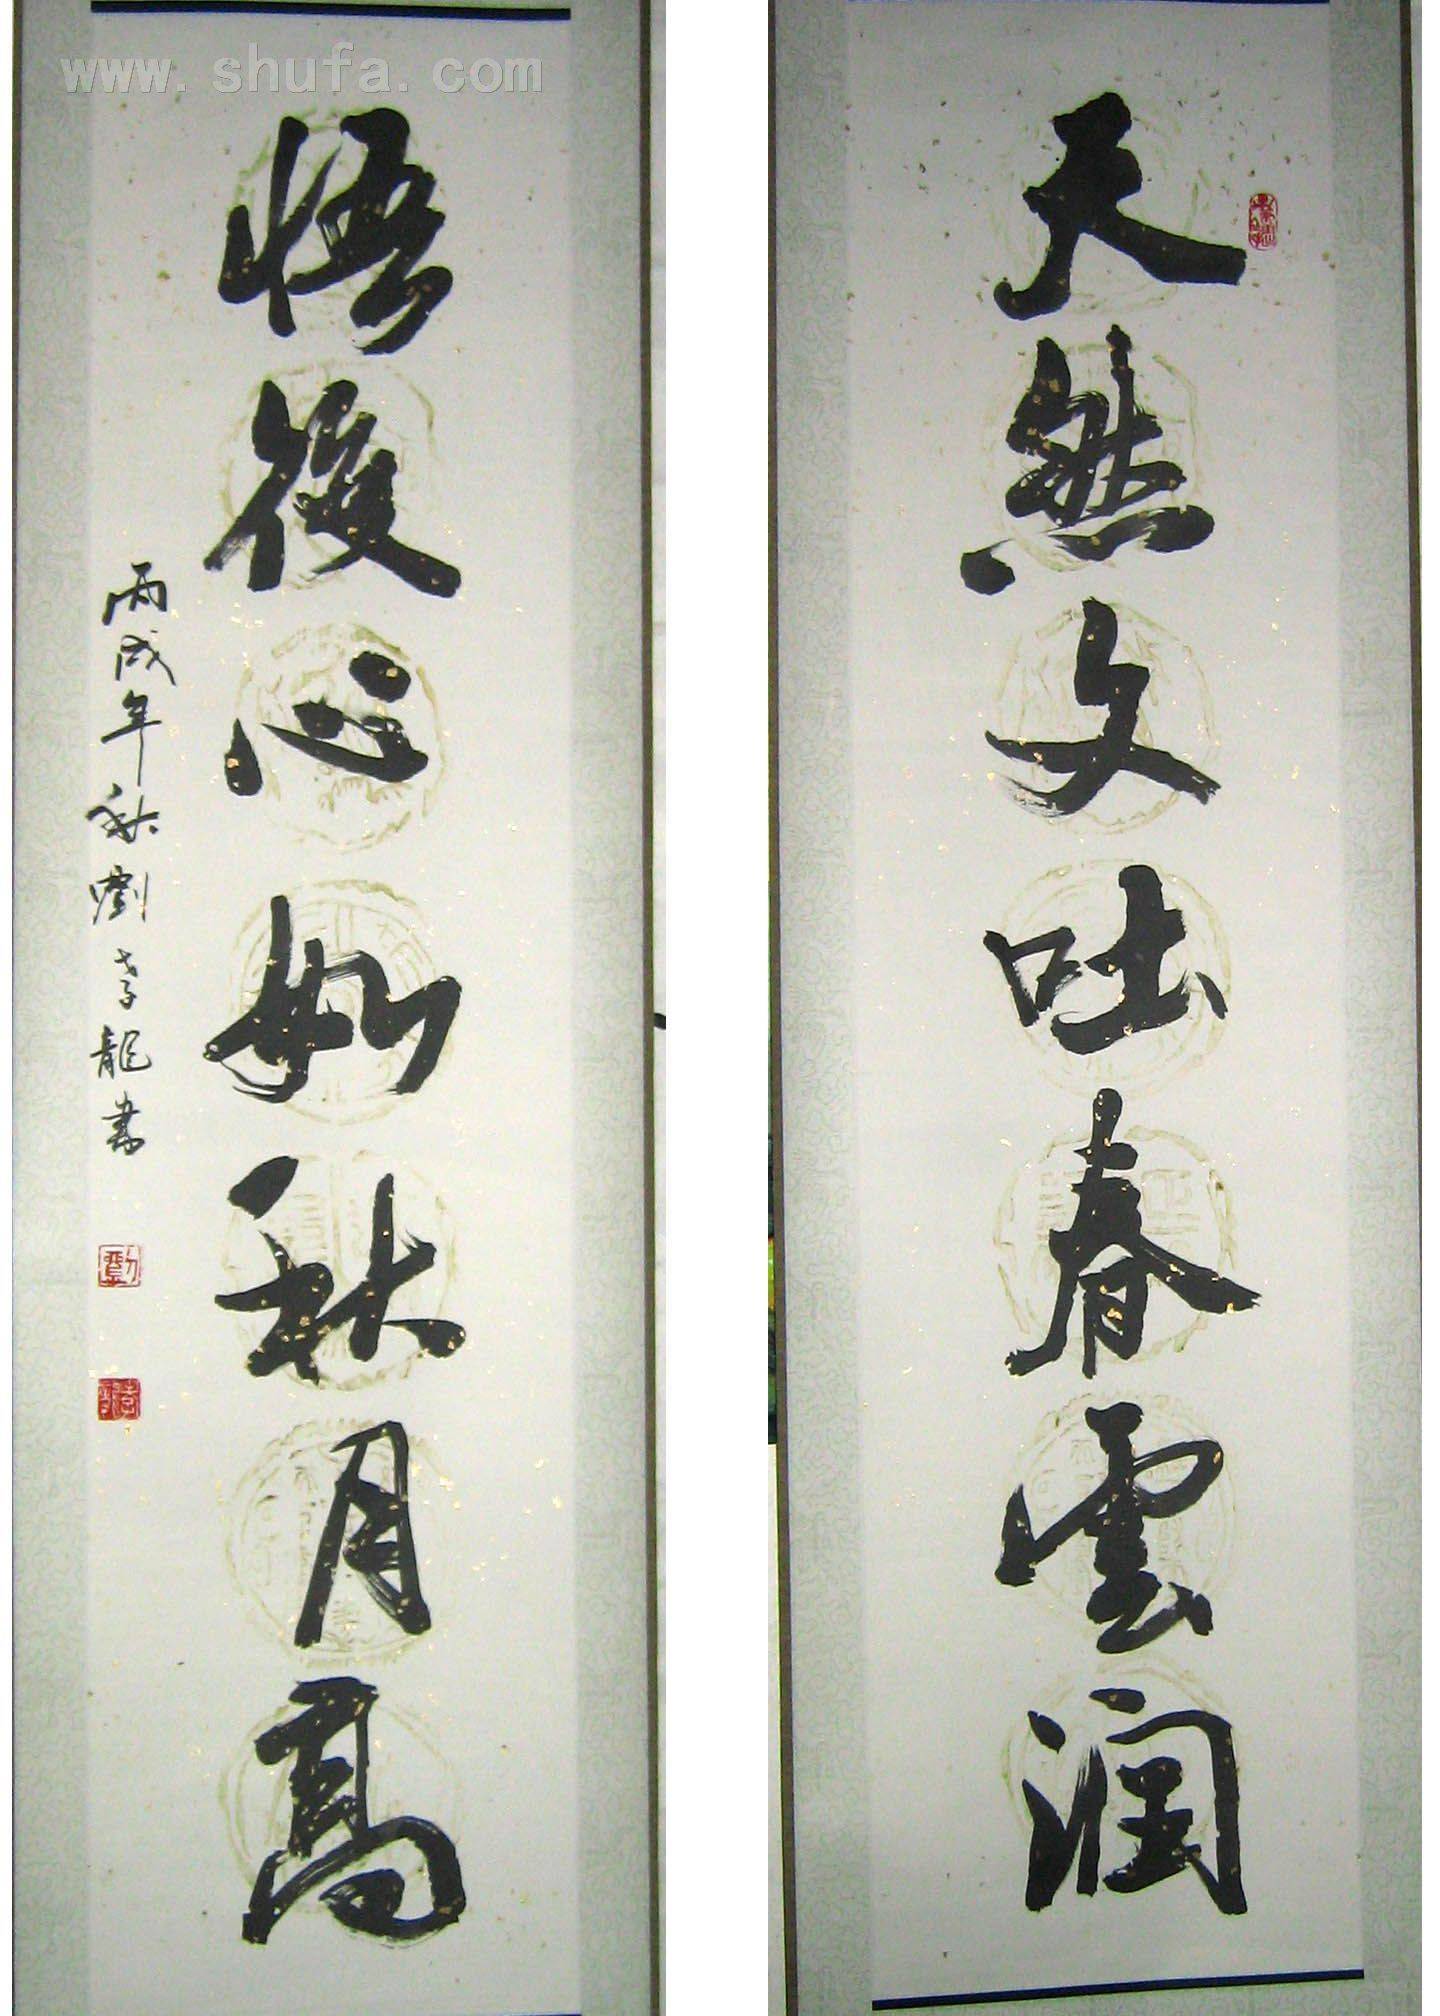 天然文吐春雲润
悟後心如秋月高
丙戌年秋劉孝龍書
www.shufa.com